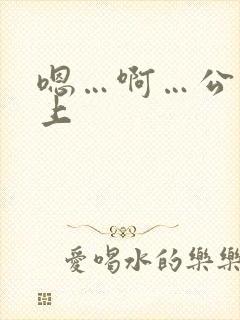 嗯…啊…公
上
愛喝水的樂樂